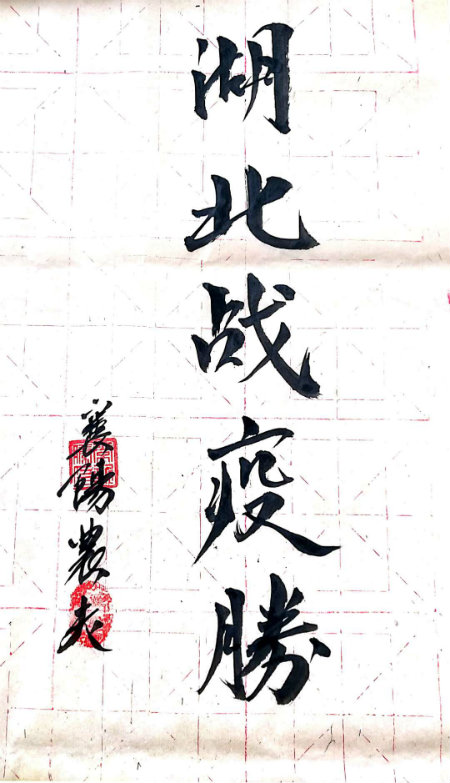 湖北战疫勝
襄陽農夫